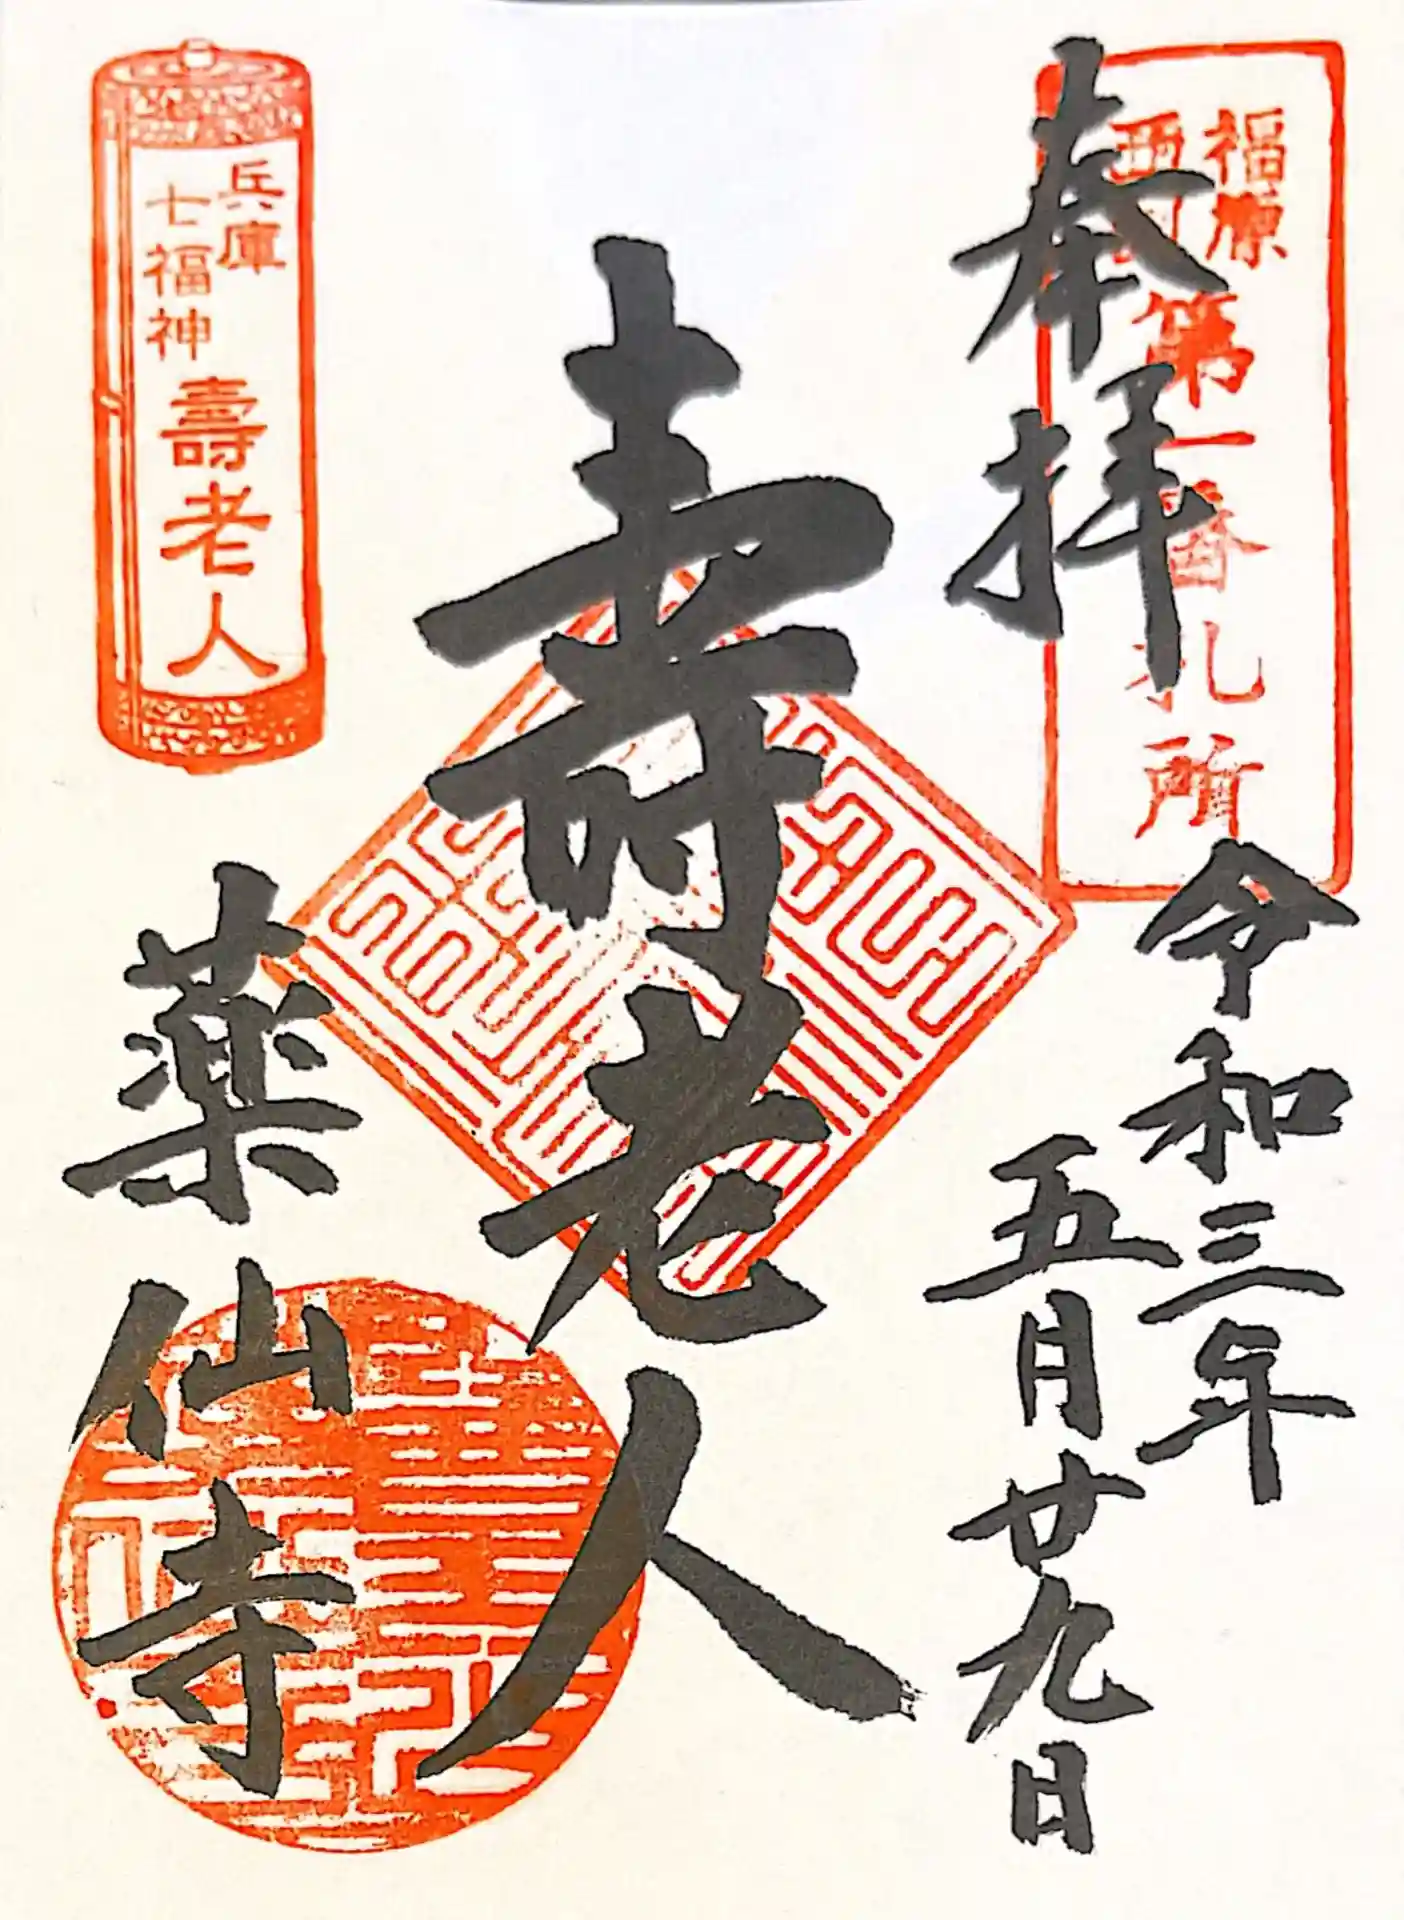 奉拝
福原
西国
第一番札所
令和三年
五月廿九日
寿老人
兵庫
七福神
壽老人
薬仙寺